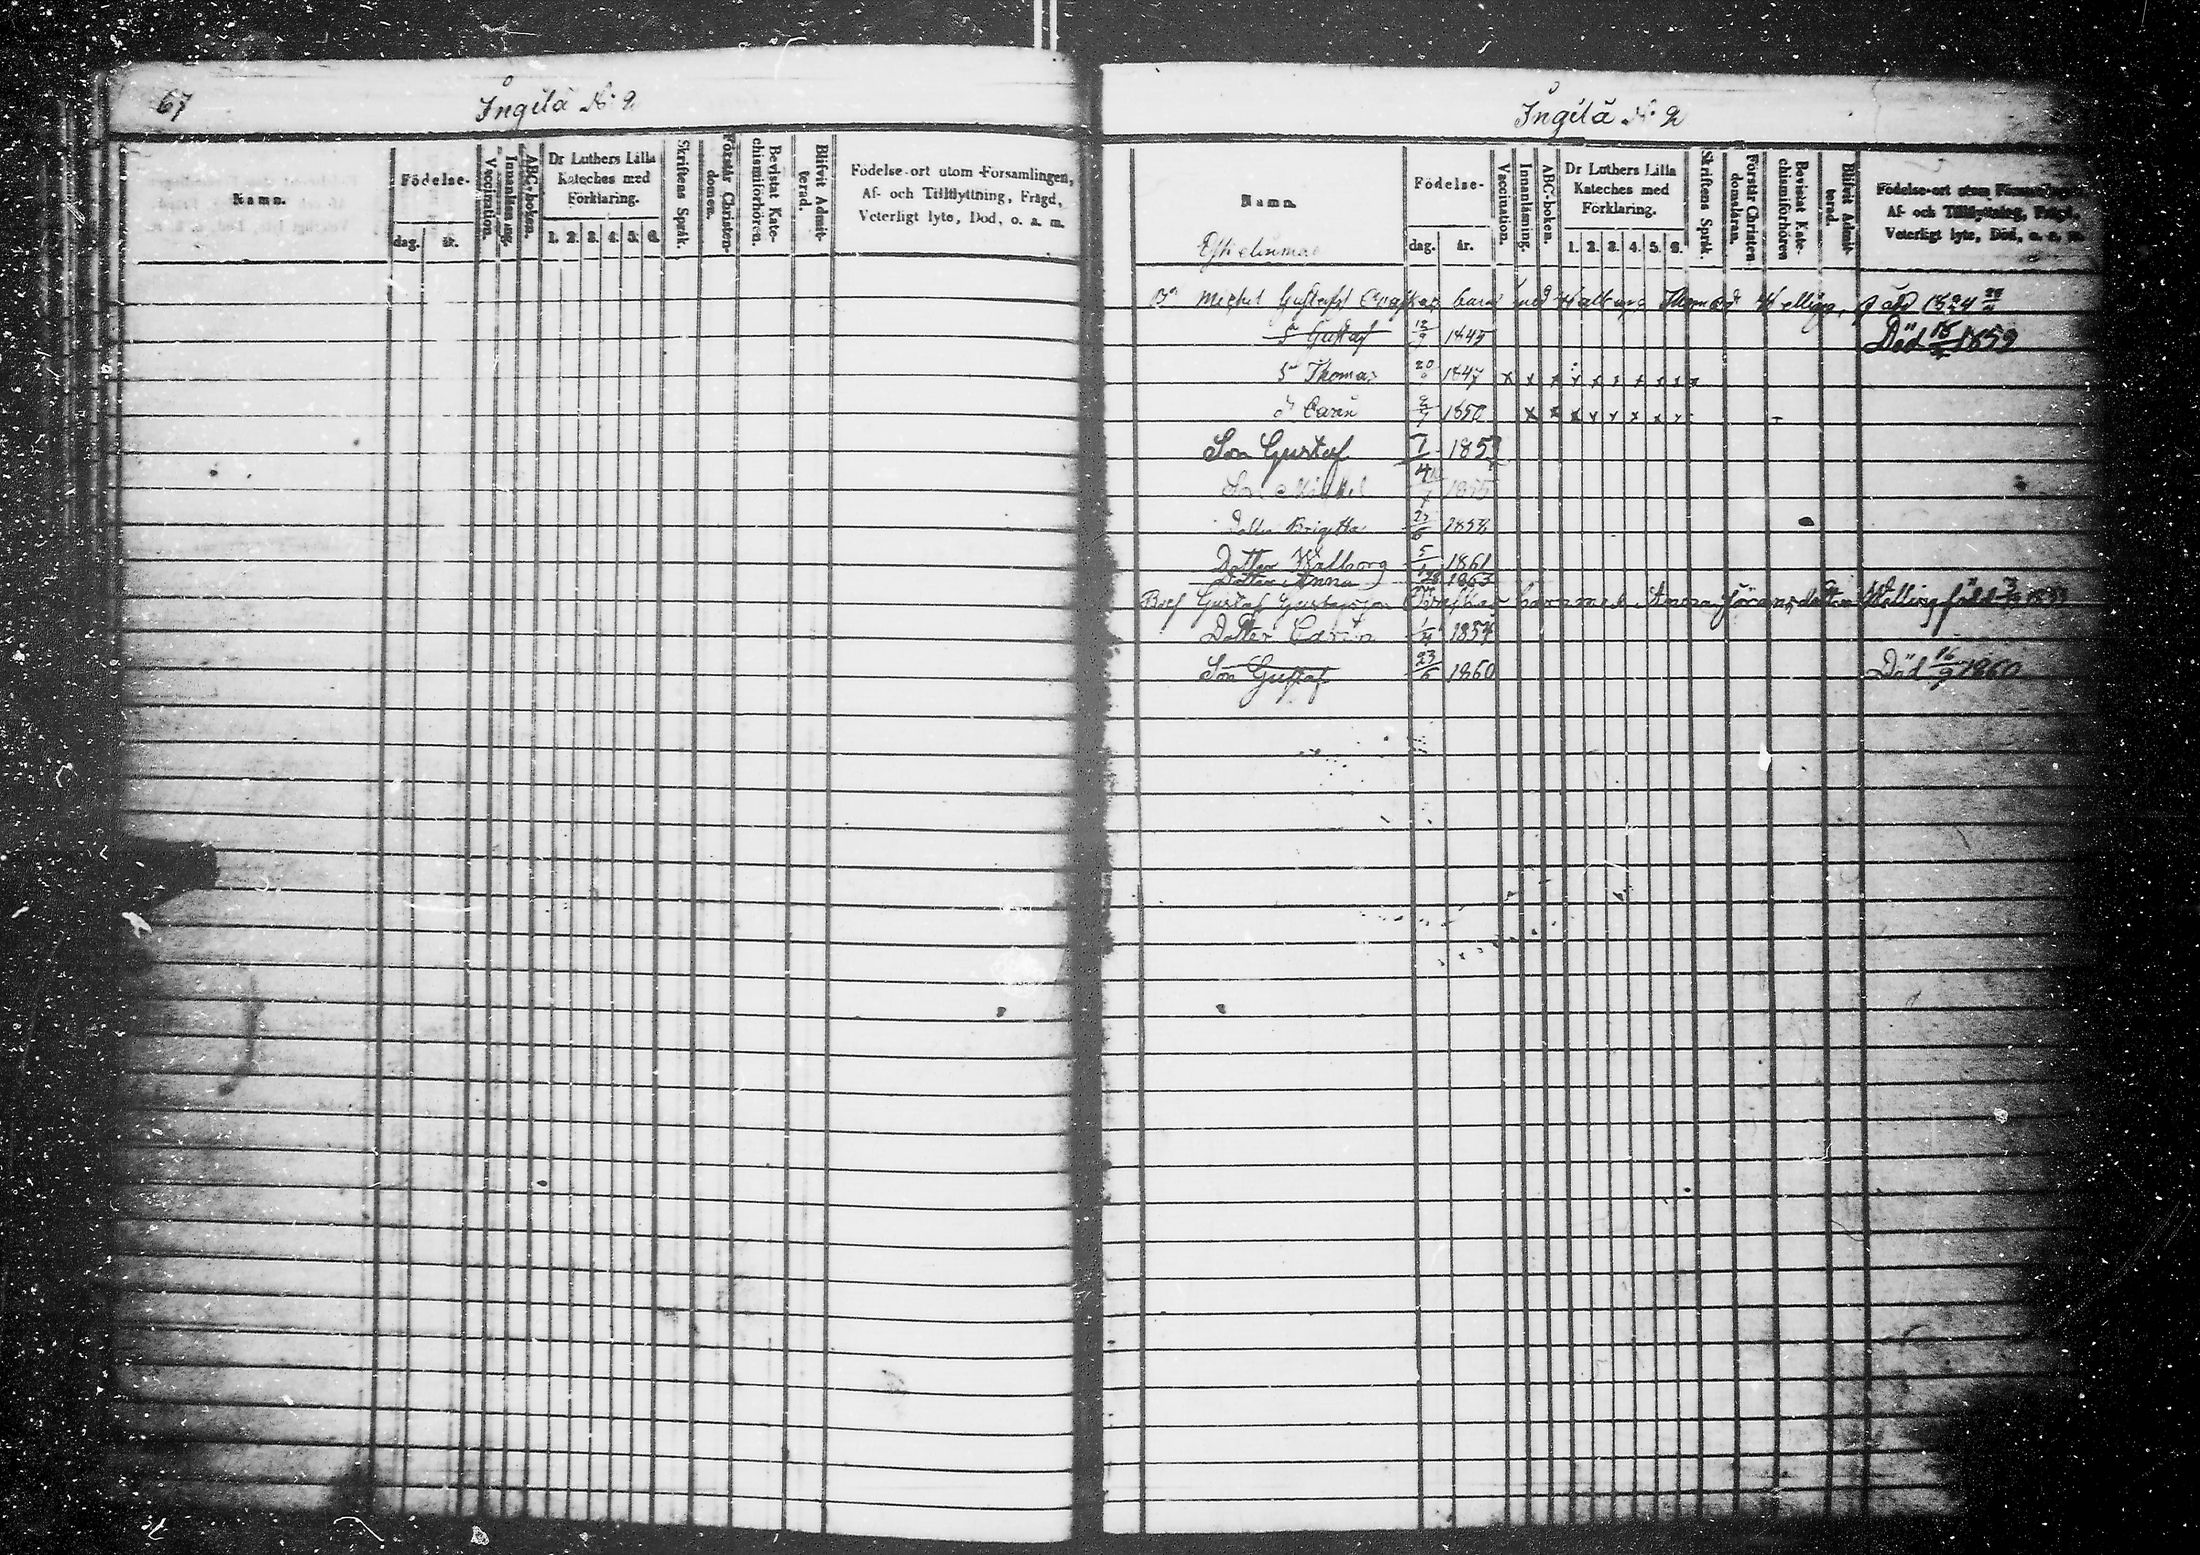 67
Ingilä No 2
Namn.
Födelse-
dag.
år.
Vaccination.
Innanläsning.
ABC-boken.
Dr Luthers Lilla
Kateches med
Förklaring.
1. 2. 3. 4. 5. 6.
Skriftens Språk.
Förstår Christen-
domen.
Bevistat Kate-
chismiförhören.
Blifvit Admit-
terad.
Födelse-ort utom Församlingen,
Af- och Tillflyttning, Frägd,
Veterligt lyte, Död, o. s. m.
Ingilä No 2
Namn.
Födelse-
dag.
år.
Vaccination.
Innanläsning.
ABC-boken.
Dr Luthers Lilla
Kateches med
Förklaring.
1. 2. 3. 4. 5. 6.
Skriftens Språk.
Förstår Christen-
domsläran.
Bevistat Kate-
chismiförhören
Blifvit Admit-
terad.
Födelse-ort utom
Af- och Tillflyttning, Frägd,
Veterligt lyte, Död, o. s. m.
Michel Gustafs barn med Walborg Thomasd 1824
S Gustaf 1845 Död 1859
S Thomas 20 1847 x x x x x x x x x x
Carin 1850 x x x x x x x x
Son Gustaf 185
Son Michel 1855
Dotter Brigitta 185
Dotter Walborg 5/1 1861
Dotter Anna 1863
Gustaf Gustafsson barn med Anna Göransdotter född
Dotter Carin 185
Son Gustaf 23/6 1860 Död 16/9 1860